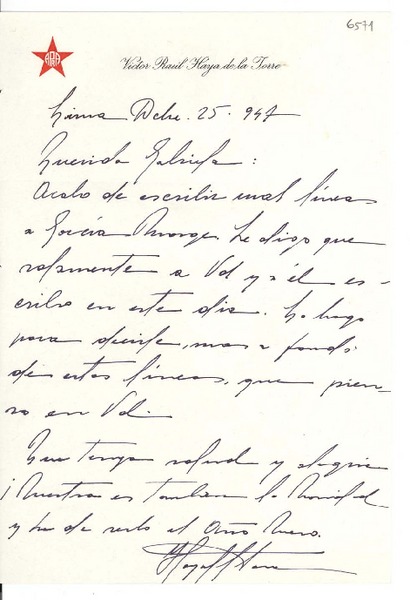 6571
APRA
Víctor Raúl Haya de la Torre
Lima Dcbre. 25. 947
Querida Gabriela:
Acabo de escribir unas líneas
a García Monge. Le digo que
solamente a Vd y a él es-
cribo en este día. Lo hago
para decirle, mas a fondo
de estas líneas, que pien-
so en Vd.
Que tenga salud y alegría
¡Nuestra es también la Navidad
y ha de serlo el Año Nuevo.